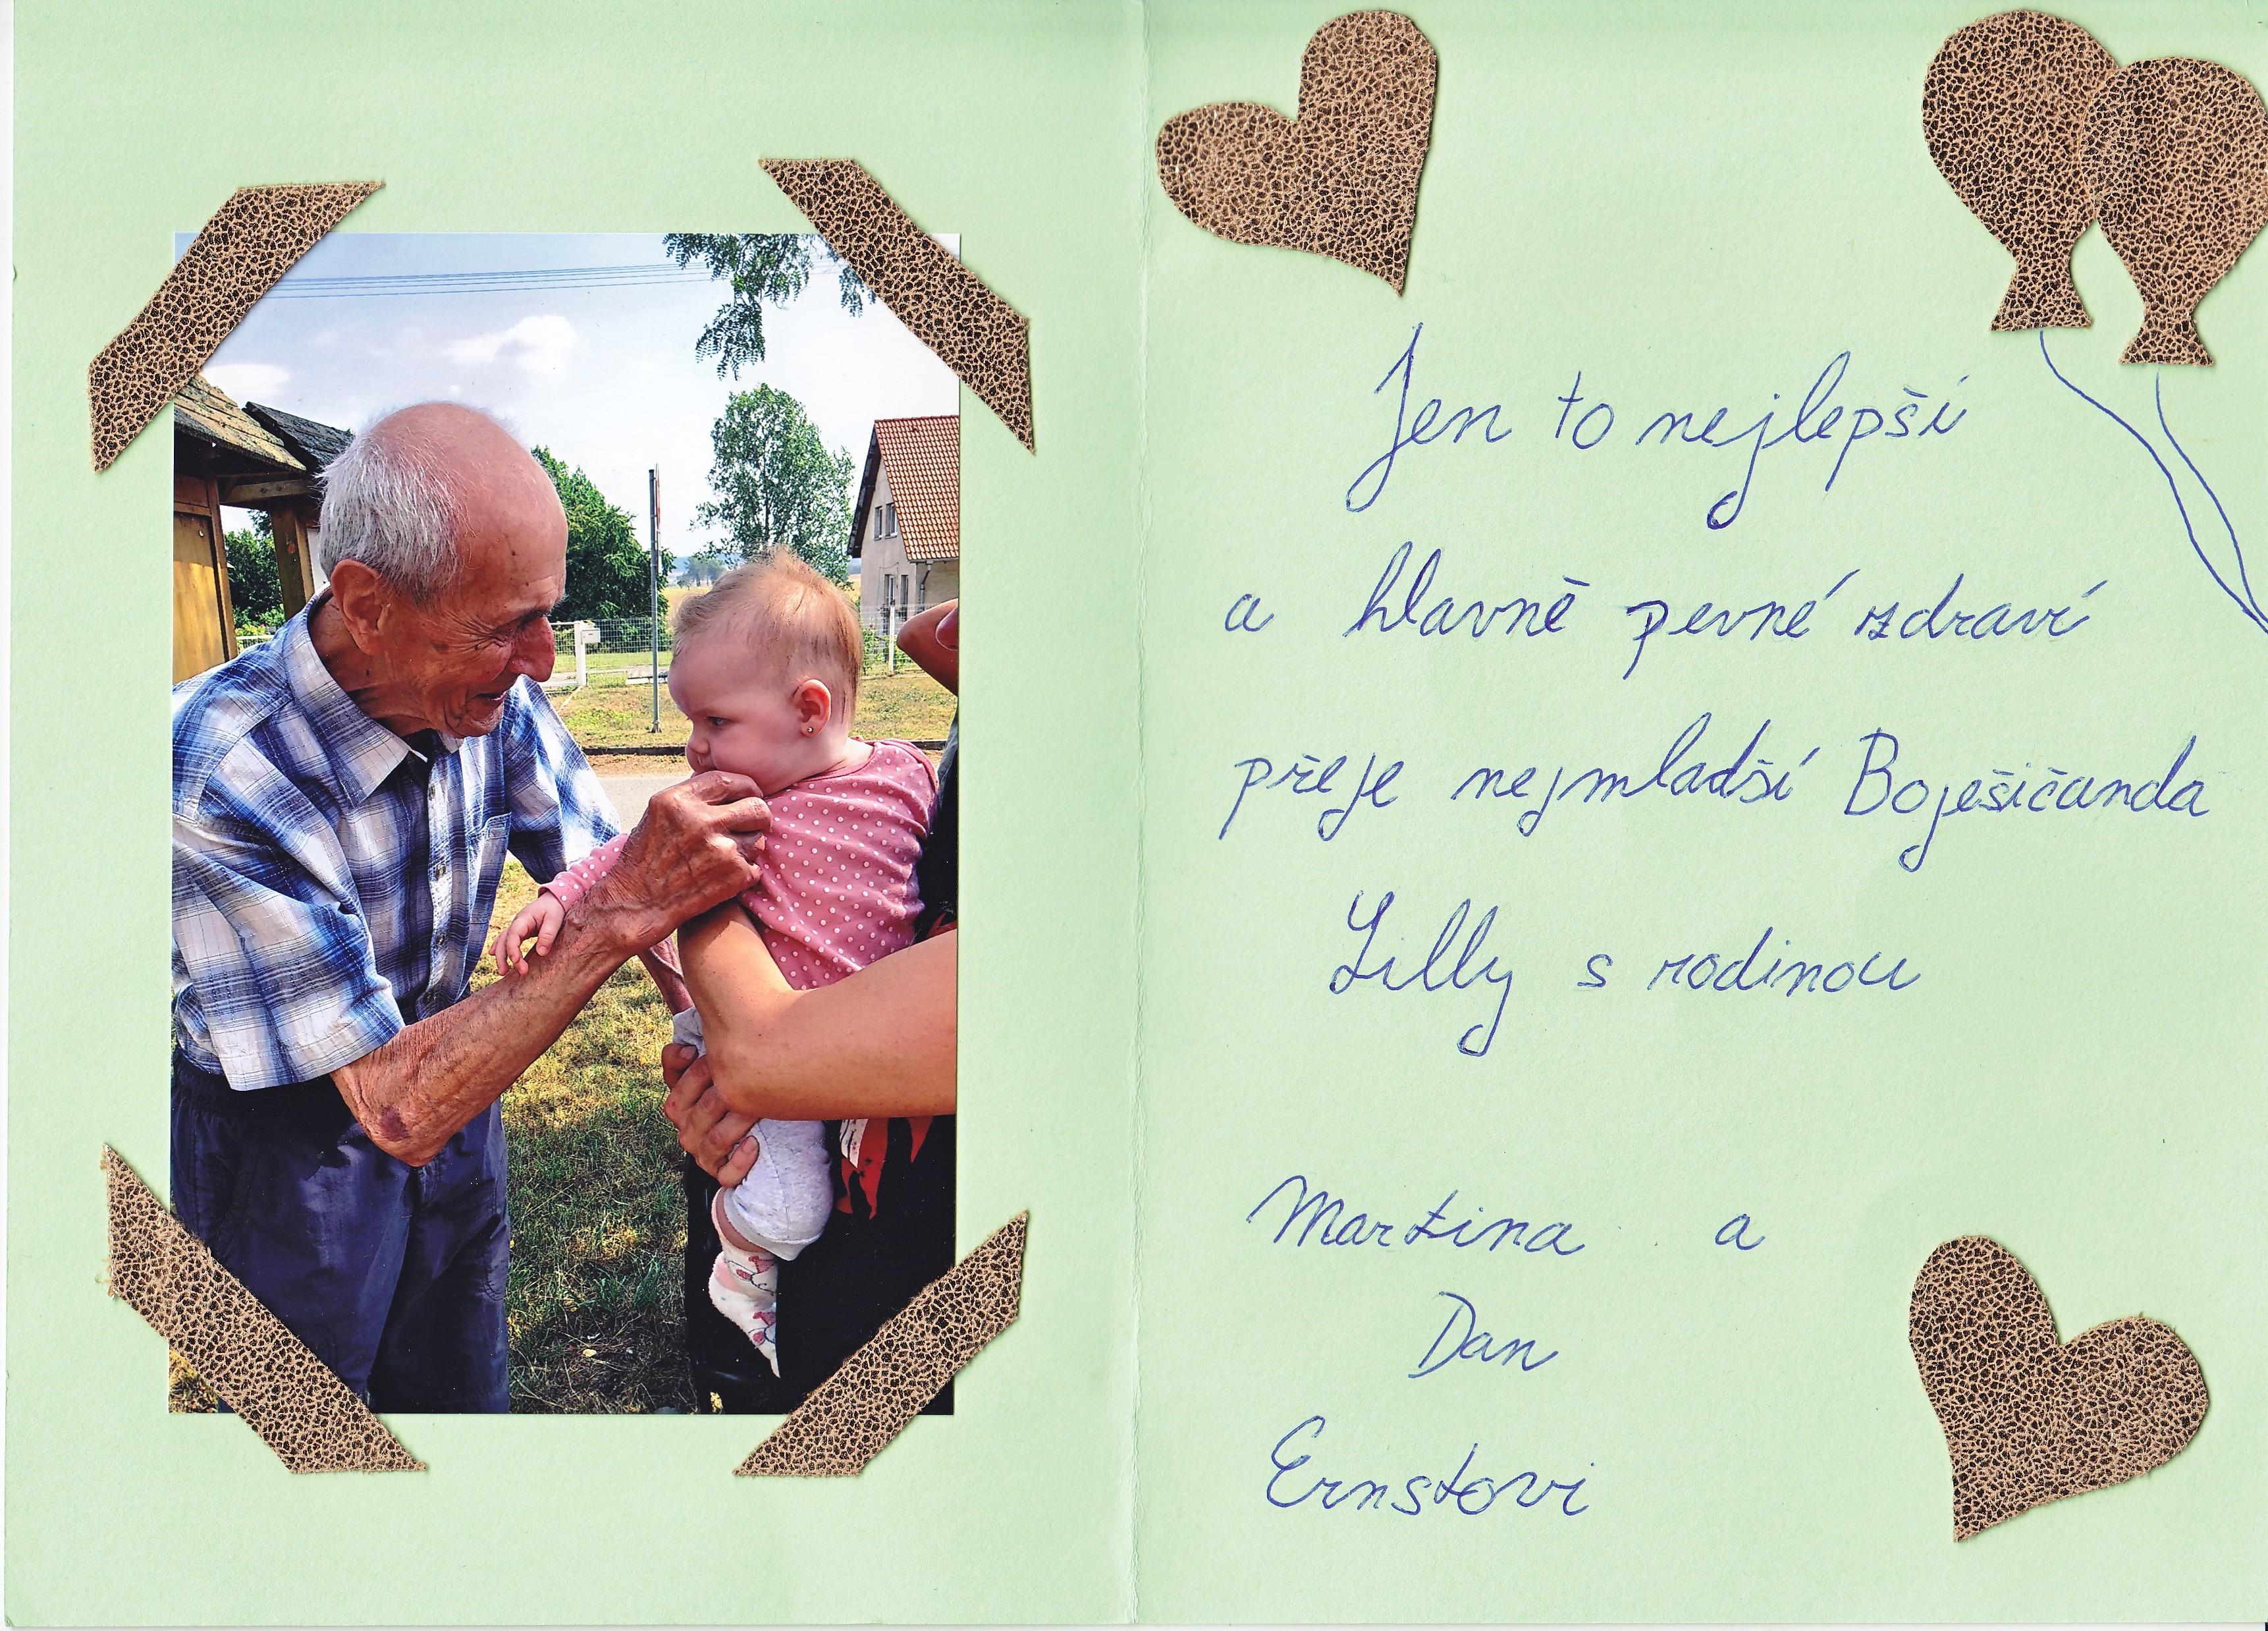 Jen to nejlepší
a hlavně pevné zdraví
přeje nejmladší Boješičanda
Lilly s rodinou
Martina a
Dan
Ernstovi